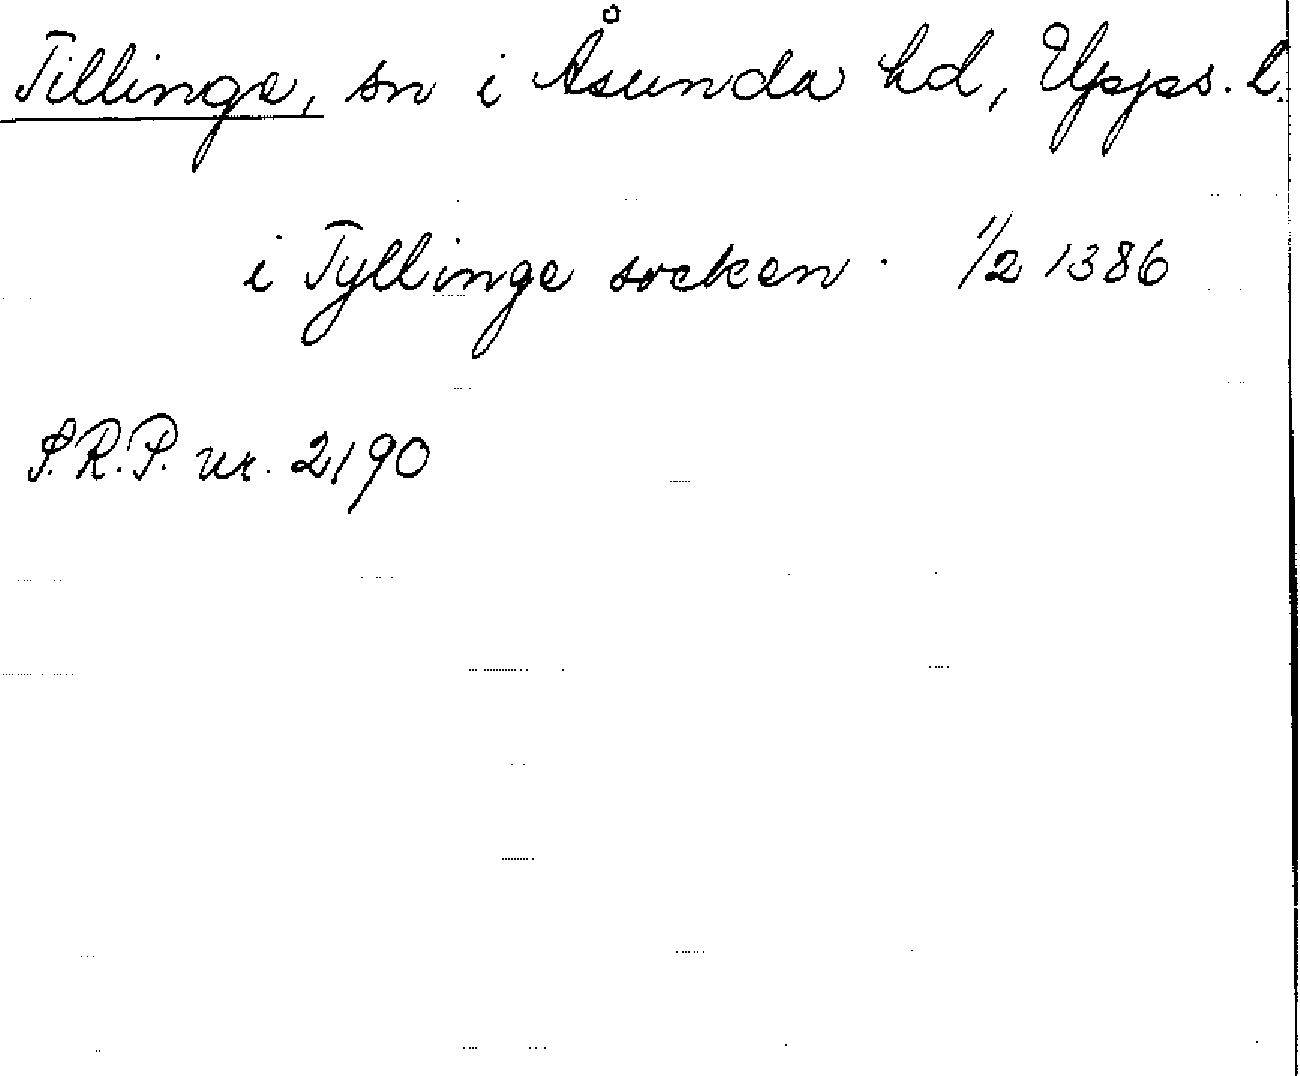 Tillinge, sn i Åsunda hd, Upps. l.
i Tyllinge socken. 1/2 1386
S.R.P. nr. 2190